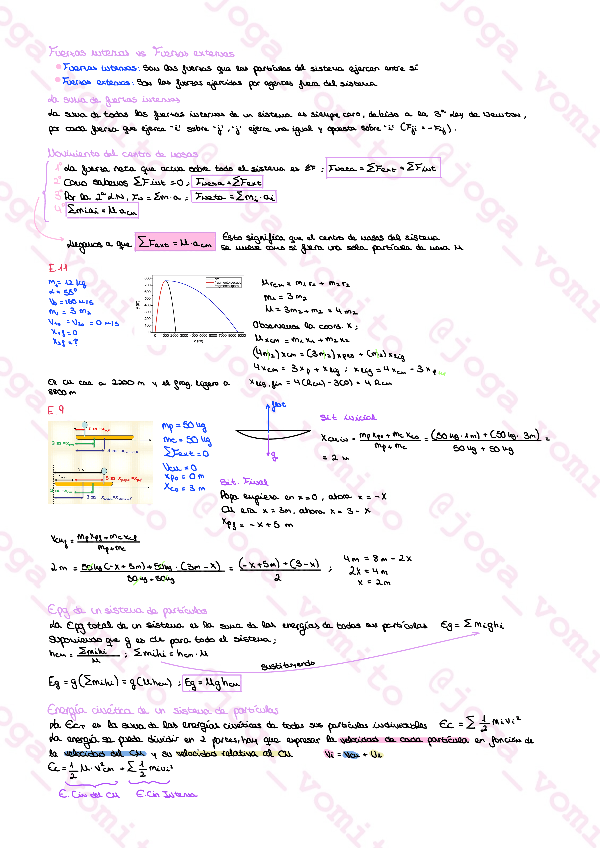 Fuerzas internas vs Fuerzas externas
Fuerzas internas: Son las fuerzas que las partículas del sistema ejercen entre sí
Fuerzas externas: Son las fuerzas ejercidas por agentes fuera del sistema
La suma de fuerzas internas
La suma de todas las fuerzas internas de un sistema es siempre cero, debido a la 3ª Ley de Newton,
por cada fuerza que ejerce "i" sobre "j", "j" ejerce una igual y opuesta sobre "i" (Fji = -Fij).
Movimiento del centro de masas
La fuerza neta que actúa sobre todo el sistema es ΣF; Fneta = ΣFext + ΣFint
Como sabemos ΣFint = 0; Fneta = ΣFext
Por la 2ª LN, Fn = Σm·a; Fneta = Σmi·ai
Σmiai = M·acm
Llegamos a que ΣFext = M·acm
Esto significa que el centro de masas del sistema
se mueve como si fuera una sola partícula de masa M
E.11
m1 = 12 kg
α = 55º
V0 = 150 m/s
m1 = 3 m2
x1f = 0
x2f = ?
M rcm = m1r1 + m2r2
m1 = 3m2
M = 3m2 + m2 = 4m2
Observamos la coord. x;
M xcm = m1x1 + m2x2
4 xcm = 3xp + xlig; xlig = 4xcm - 3xp
E 9
mp = 50 kg
mc = 50 kg
ΣFext = 0
Vcm = 0
xp0 = 0 m
xc0 = 3 m
g
Sit inicial
= 2 m
Sit. Final
Papa empieza en x=0, ahora x = -x
CM era x = 3m, ahora x = 3 - x
xpf = -x + 5 m
4m = 8m - 2x
2x = 4m
x = 2m
Epg de un sistema de partículas
La Epg total de un sistema es la suma de las energías de todas sus partículas Eg = Σmighi
Suponiendo que g es cte para todo el sistema;
hcm = Σmihi / M ; Σmihi = hcm·M
sustituyendo
Eg = g(Σmihi) = g(Mhcm); Eg = Mghcm
Energía cinética de un sistema de partículas
La EcT es la suma de las energías cinéticas de todas sus partículas individuales Ec = Σ 1/2 mivi²
La energía se puede dividir en 2 partes, hay que expresar la velocidad de cada partícula en función de
la velocidad del CM y su velocidad relativa al CM
Ec = 1/2 M·v²cm + Σ 1/2 miui²
E.Cin del CM E.Cin Interna
@joga_vomito